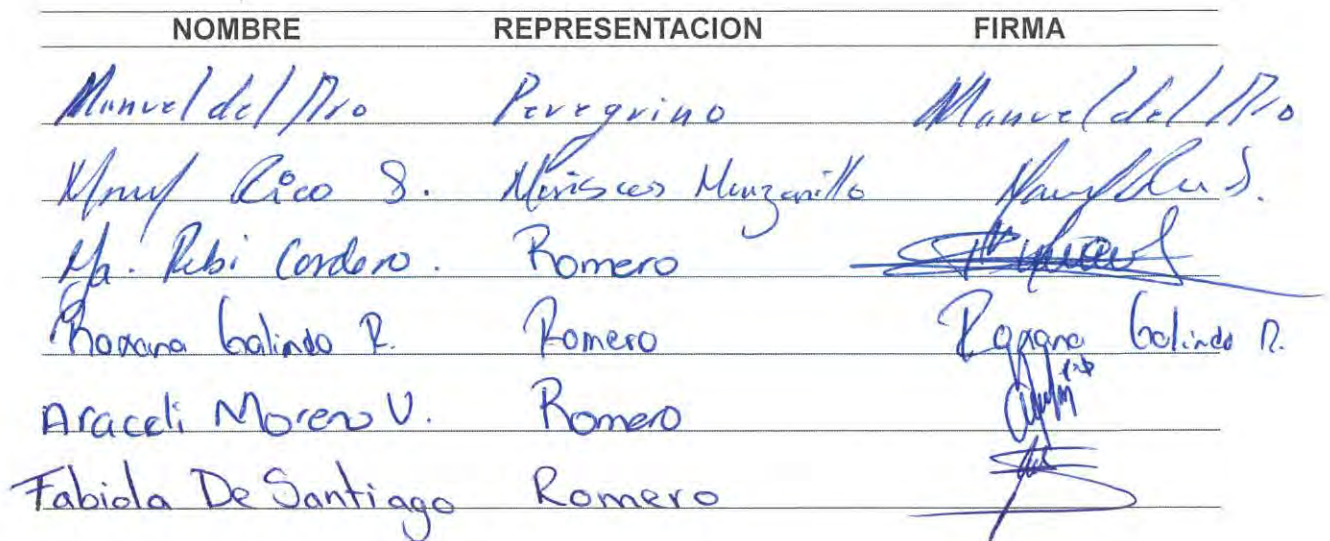 NOMBRE REPRESENTACION FIRMA
Manuel del Peregrino Manuel del
Rico S. Mariscos Manzanillo S.
Ma. Rubi Cordero. Romero
Roxana Galindo R. Romero Roxana Galindo R.
Araceli Moreno V. Romero
Fabiola De Santiago Romero